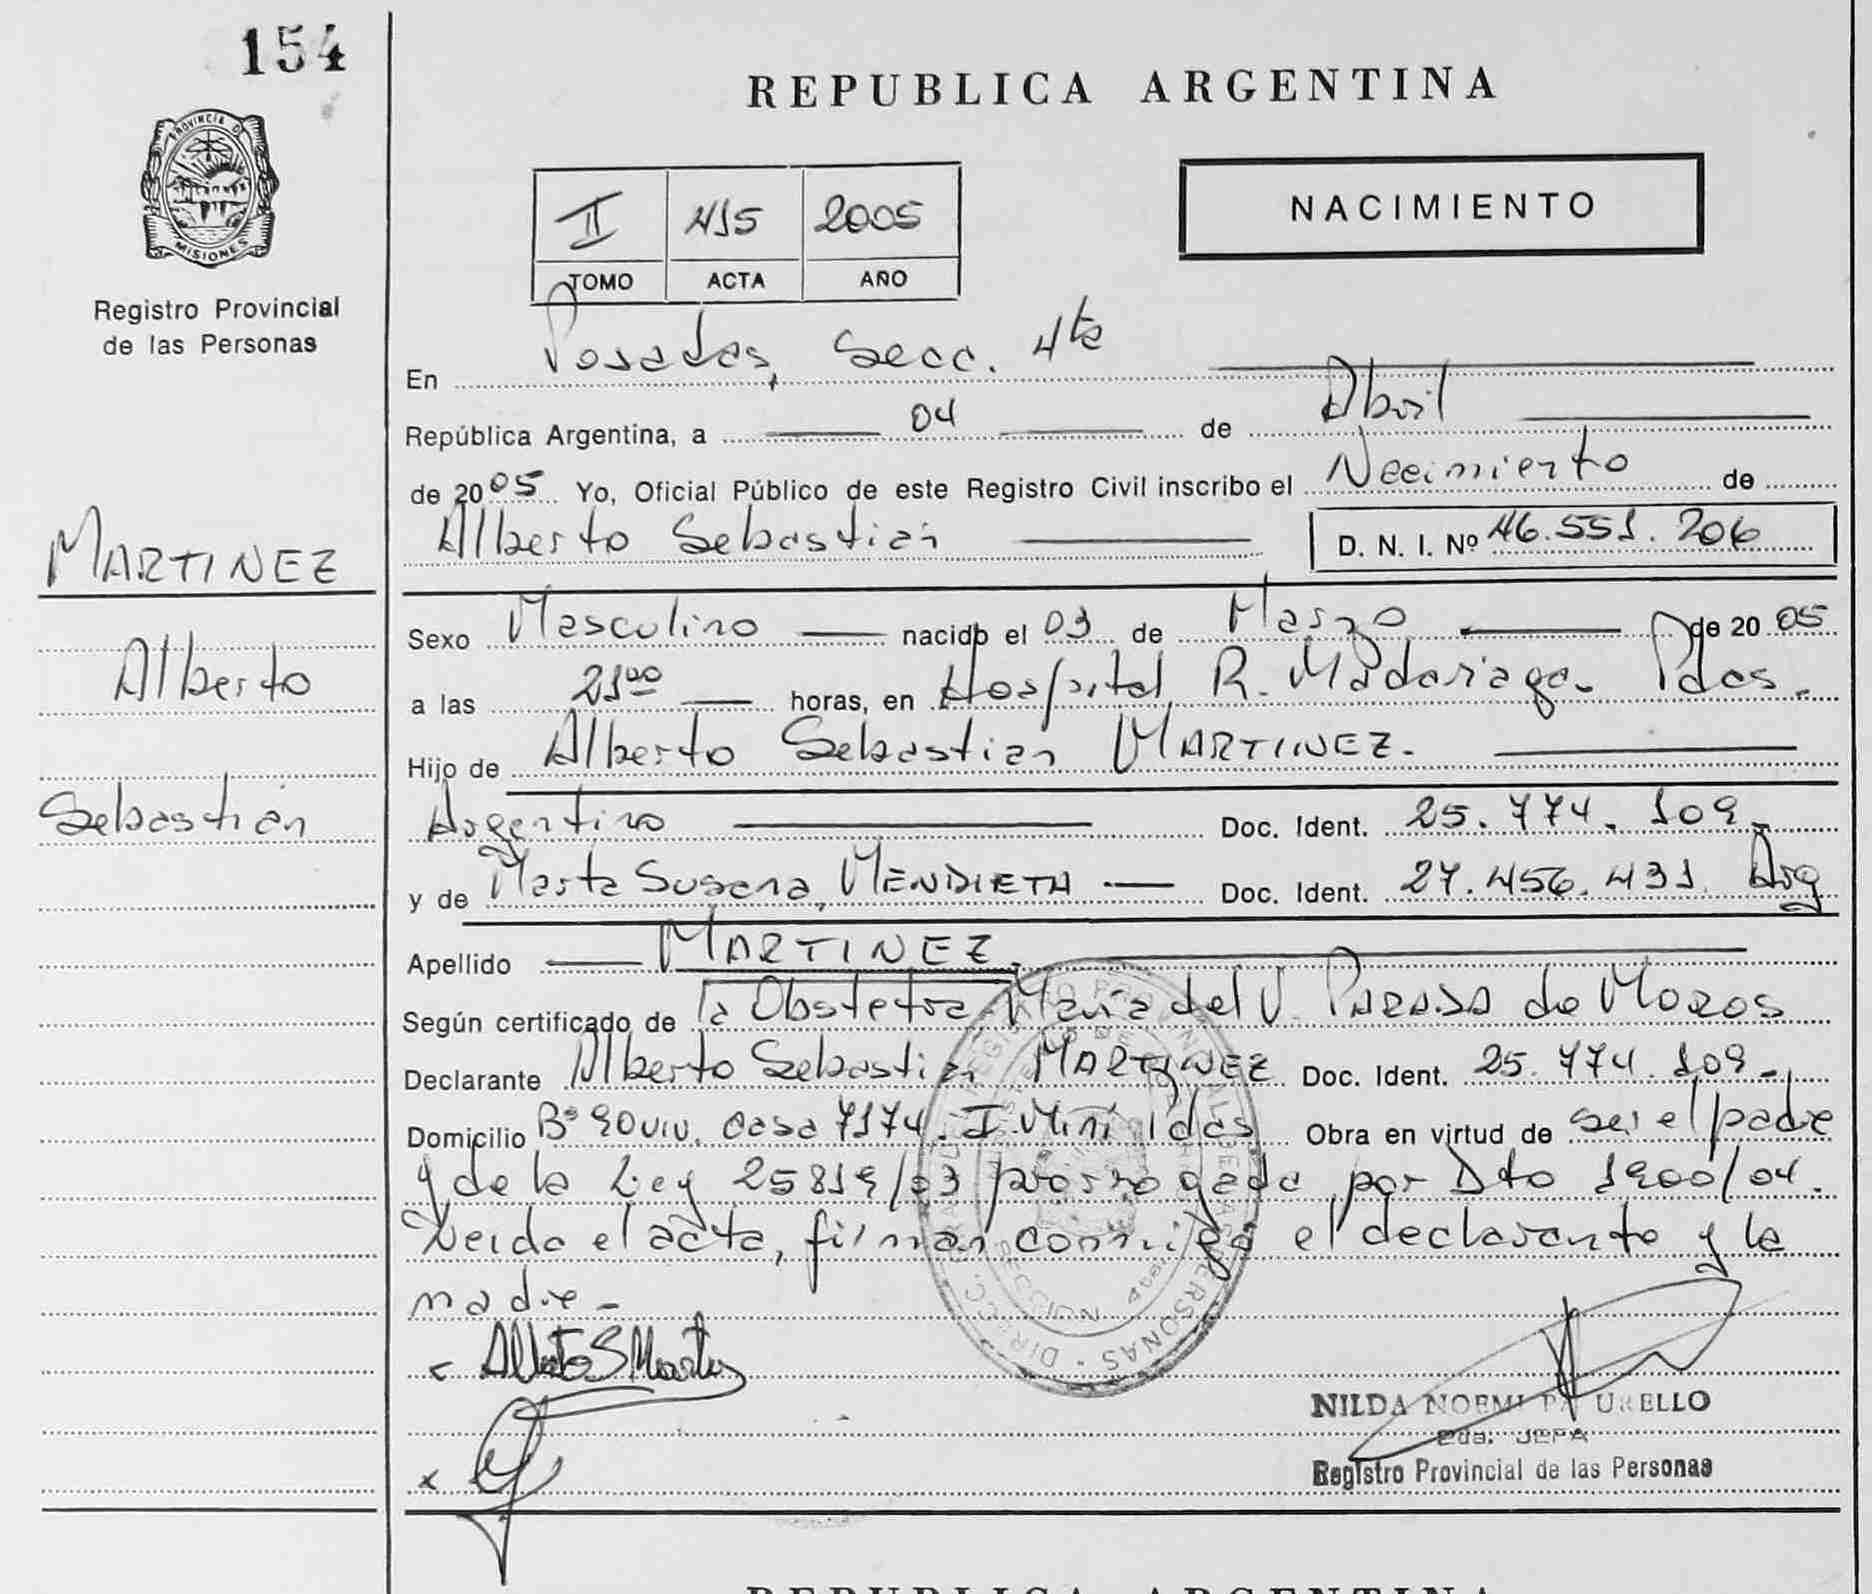 154
REPUBLICA ARGENTINA
PROVINCIA DE
MISIONES
Registro Provincial
de las Personas
NACIMIENTO
II 415 2005
TOMO ACTA AÑO
En Posadas, Secc. 4ta
República Argentina, a 04 de Abril
de 2005 Yo, Oficial Público de este Registro Civil inscribo el Nacimiento de
Alberto Sebastián D. N. I. Nº 46.551.206
MARTINEZ
Alberto
Sebastián
Sexo Masculino nacido el 03 de Marzo de 2005
a las 2100 horas, en Hospital R. Madariaga. Pdas.
Hijo de Alberto Sebastian MARTINEZ.
Argentino Doc. Ident. 25.774.109.
y de Marta Susana, MENDIETA Doc. Ident. 27.456.431. Arg
Apellido MARTINEZ.
Según certificado de la Obstetra María del V. PARADA de MOROS
Declarante Alberto Sebastian MARTINEZ Doc. Ident. 25.774.109.
Domicilio Bº 90 viv. casa 7174. I. Miní Pdas Obra en virtud de ser el padre
y de la Ley 25819/03 prorrogada por Dto 1900/04.
Leída el acta, firman conmigo el declarante y la
madre.
Alberto S Martinez
NILDA NOEMI
2da. JEFA
Registro Provincial de las Personas
REPUBLICA ARGENTINA